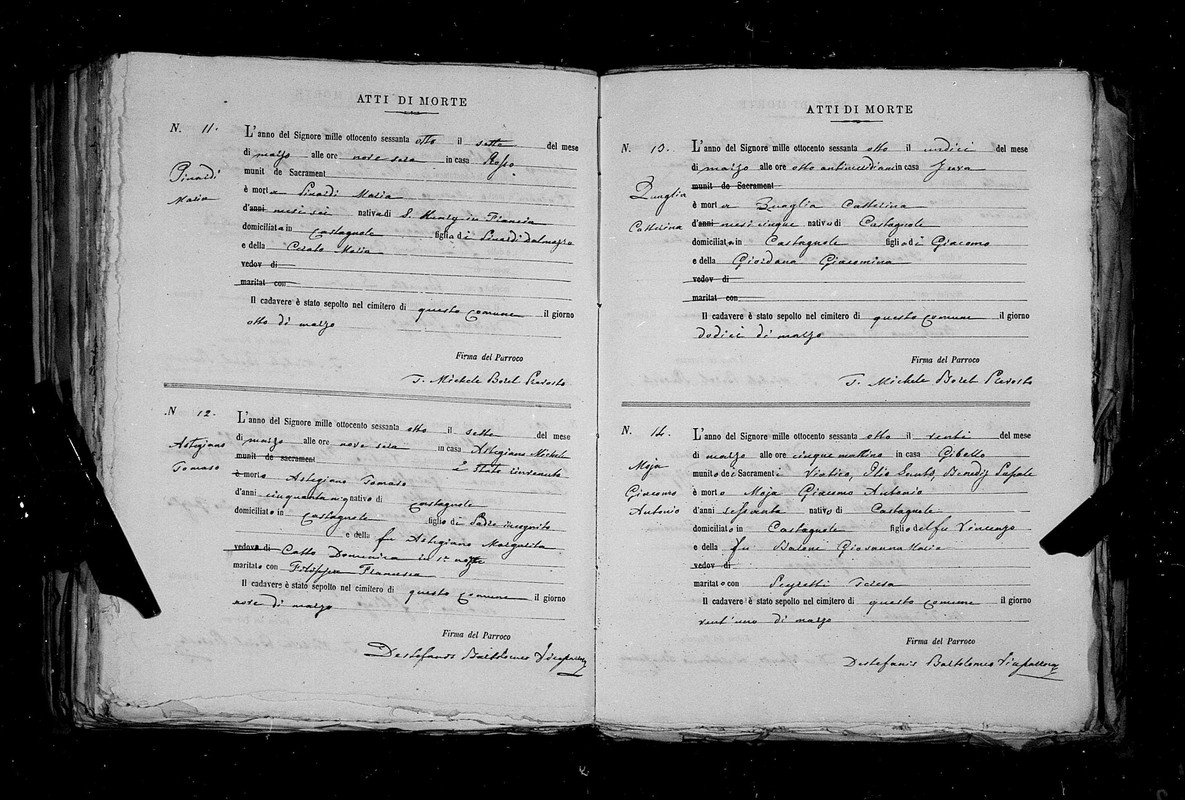 ATTI DI MORTE
N. 11.
Pinardi
Maria
L'anno del Signore mille ottocento sessanta otto il sette del mese
di marzo alle ore nove sera in casa Rosso
munit de Sacrament
è morta Pinardi Maria
d'anni mesi sei nativa di S. Henry in Francia
domiciliata in Castagnole figlia di Pinardi Dalmazio
e della Cerato Maria
vedov di
maritat con
Il cadavere è stato sepolto nel cimitero di questo comune il giorno
otto di marzo
Firma del Parroco
T. Michele Borel Prevosto
N 12.
Astegiano
Tomaso
L'anno del Signore mille ottocento sessanta otto il sette del mese
di marzo alle ore nove sera in casa Astegiano Michele
munit de sacrament è Stato rinvenuto
è morto Astegiano Tomaso
d'anni cinquanta nativo di Castagnole
domiciliato in Castagnole figlio di Padre incognito
e della fu Astegiano Margarita
vedovo di Catto Domenica in 1e nozze
maritato con Francesca
Il cadavere è stato sepolto nel cimitero di questo comune il giorno
nove di marzo
Firma del Parroco
Destefanis Bartolomeo Vicepallore
ATTI DI MORTE
N. 13.
Quaglia
Catterina
L'anno del Signore mille ottocento sessanta otto il undici del mese
di marzo alle ore otto antimeridiane in casa Juva
munit de Sacrament
è morta Quaglia Catterina
d'anni mesi cinque nativa di Castagnole
domiciliata in Castagnole figlia di Giacomo
e della Giordana Giacomina
vedov di
maritat con
Il cadavere è stato sepolto nel cimitero di questo comune il giorno
dodici di marzo
Firma del Parroco
T. Michele Borel Prevosto
N. 14.
Moja
Giacomo
Antonio
L'anno del Signore mille ottocento sessanta otto il venti del mese
di marzo alle ore cinque mattino in casa Gibello
munito dei Sacramenti Viatico, Olio Santo, Benediz Papale
è morto Moja Giacomo Antonio
d'anni sessanta nativo di Castagnole
domiciliato in Castagnole figlio del fu Vincenzo
e della fu Baroni Giovanna Maria
vedov di
maritato con Peyretti Teresa
Il cadavere è stato sepolto nel cimitero di questo comune il giorno
vent'uno di marzo
Firma del Parroco
Destefanis Bartolomeo